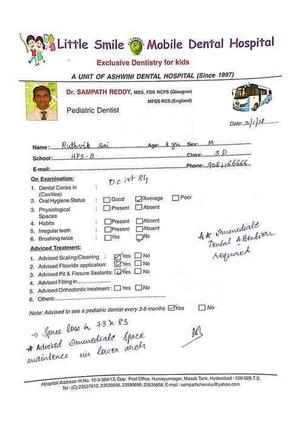 Little Smile Mobile Dental Hospital
Exclusive Dentistry for kids
A UNIT OF ASHWINI DENTAL HOSPITAL (Since 1997)
Dr. SAMPATH REDDY, MDS, FDS RCPS (Glasgow)
MFDS RCS (England)
Pediatric Dentist
Date: 3/1/18
Name: Ruthvik Sri Age: 8 yrs Sex: M
School: HPS-B Class: 3 D
E-mail: Phone:
On Examination:
1. Dental Caries in (Cavities)
2. Oral Hygiene Status Good Average Poor
3. Physiological Spaces Present Absent
4. Habits Present Absent
5. Irregular teeth Present Absent
6. Brushing twice Yes No
** Immediate Dental Attention Required
Adviced Treatment:
1. Advised Scaling/Cleaning Yes No
2. Advised Flouride application: Yes No
3. Advised Pit & Fissure Sealants: Yes No
4. Advised Filling in
5. Advised Orthodontic treatment: Yes No
6. Others:
Note: Advised to see a pediatric dentist every 3-6 months Yes No
→ Space loss in 73 x 83
* Advised Immediate Space
maintence in lower arch
Hospital Address:
Opp. Post Office, Humayunnagar, Masab Tank, Hyderabad - 500 028.T.S.